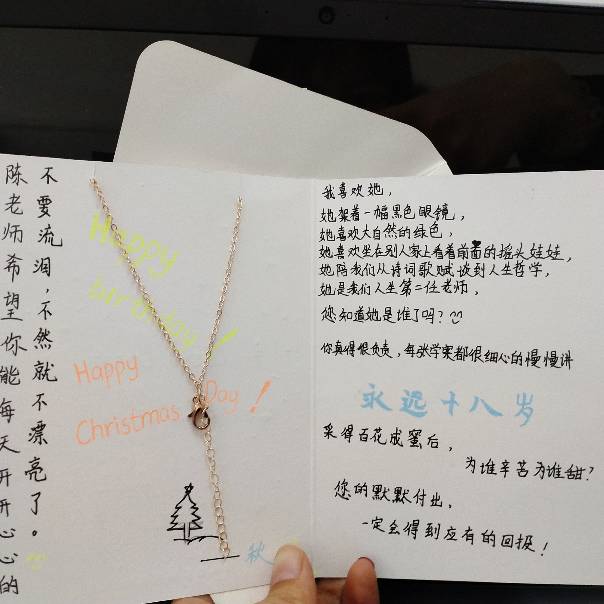 陈老师希望你能每天开开心心的
不要流泪，不然就不漂亮了。
Happy
birthday!
Happy
Christmas Day!
秋
我喜欢她，
她架着一幅黑色眼镜，
她喜欢大自然的绿色，
她喜欢坐在别人家上看着前面的摇头娃娃，
她陪我们从诗词歌赋谈到人生哲学，
她是我们人生第二任老师，
您知道她是谁了吗？
你真得很负责，每张学案都很细心的慢慢讲
永远十八岁
采得百花成蜜后，
为谁辛苦为谁甜？
您的默默付出，
一定会得到应有的回报！